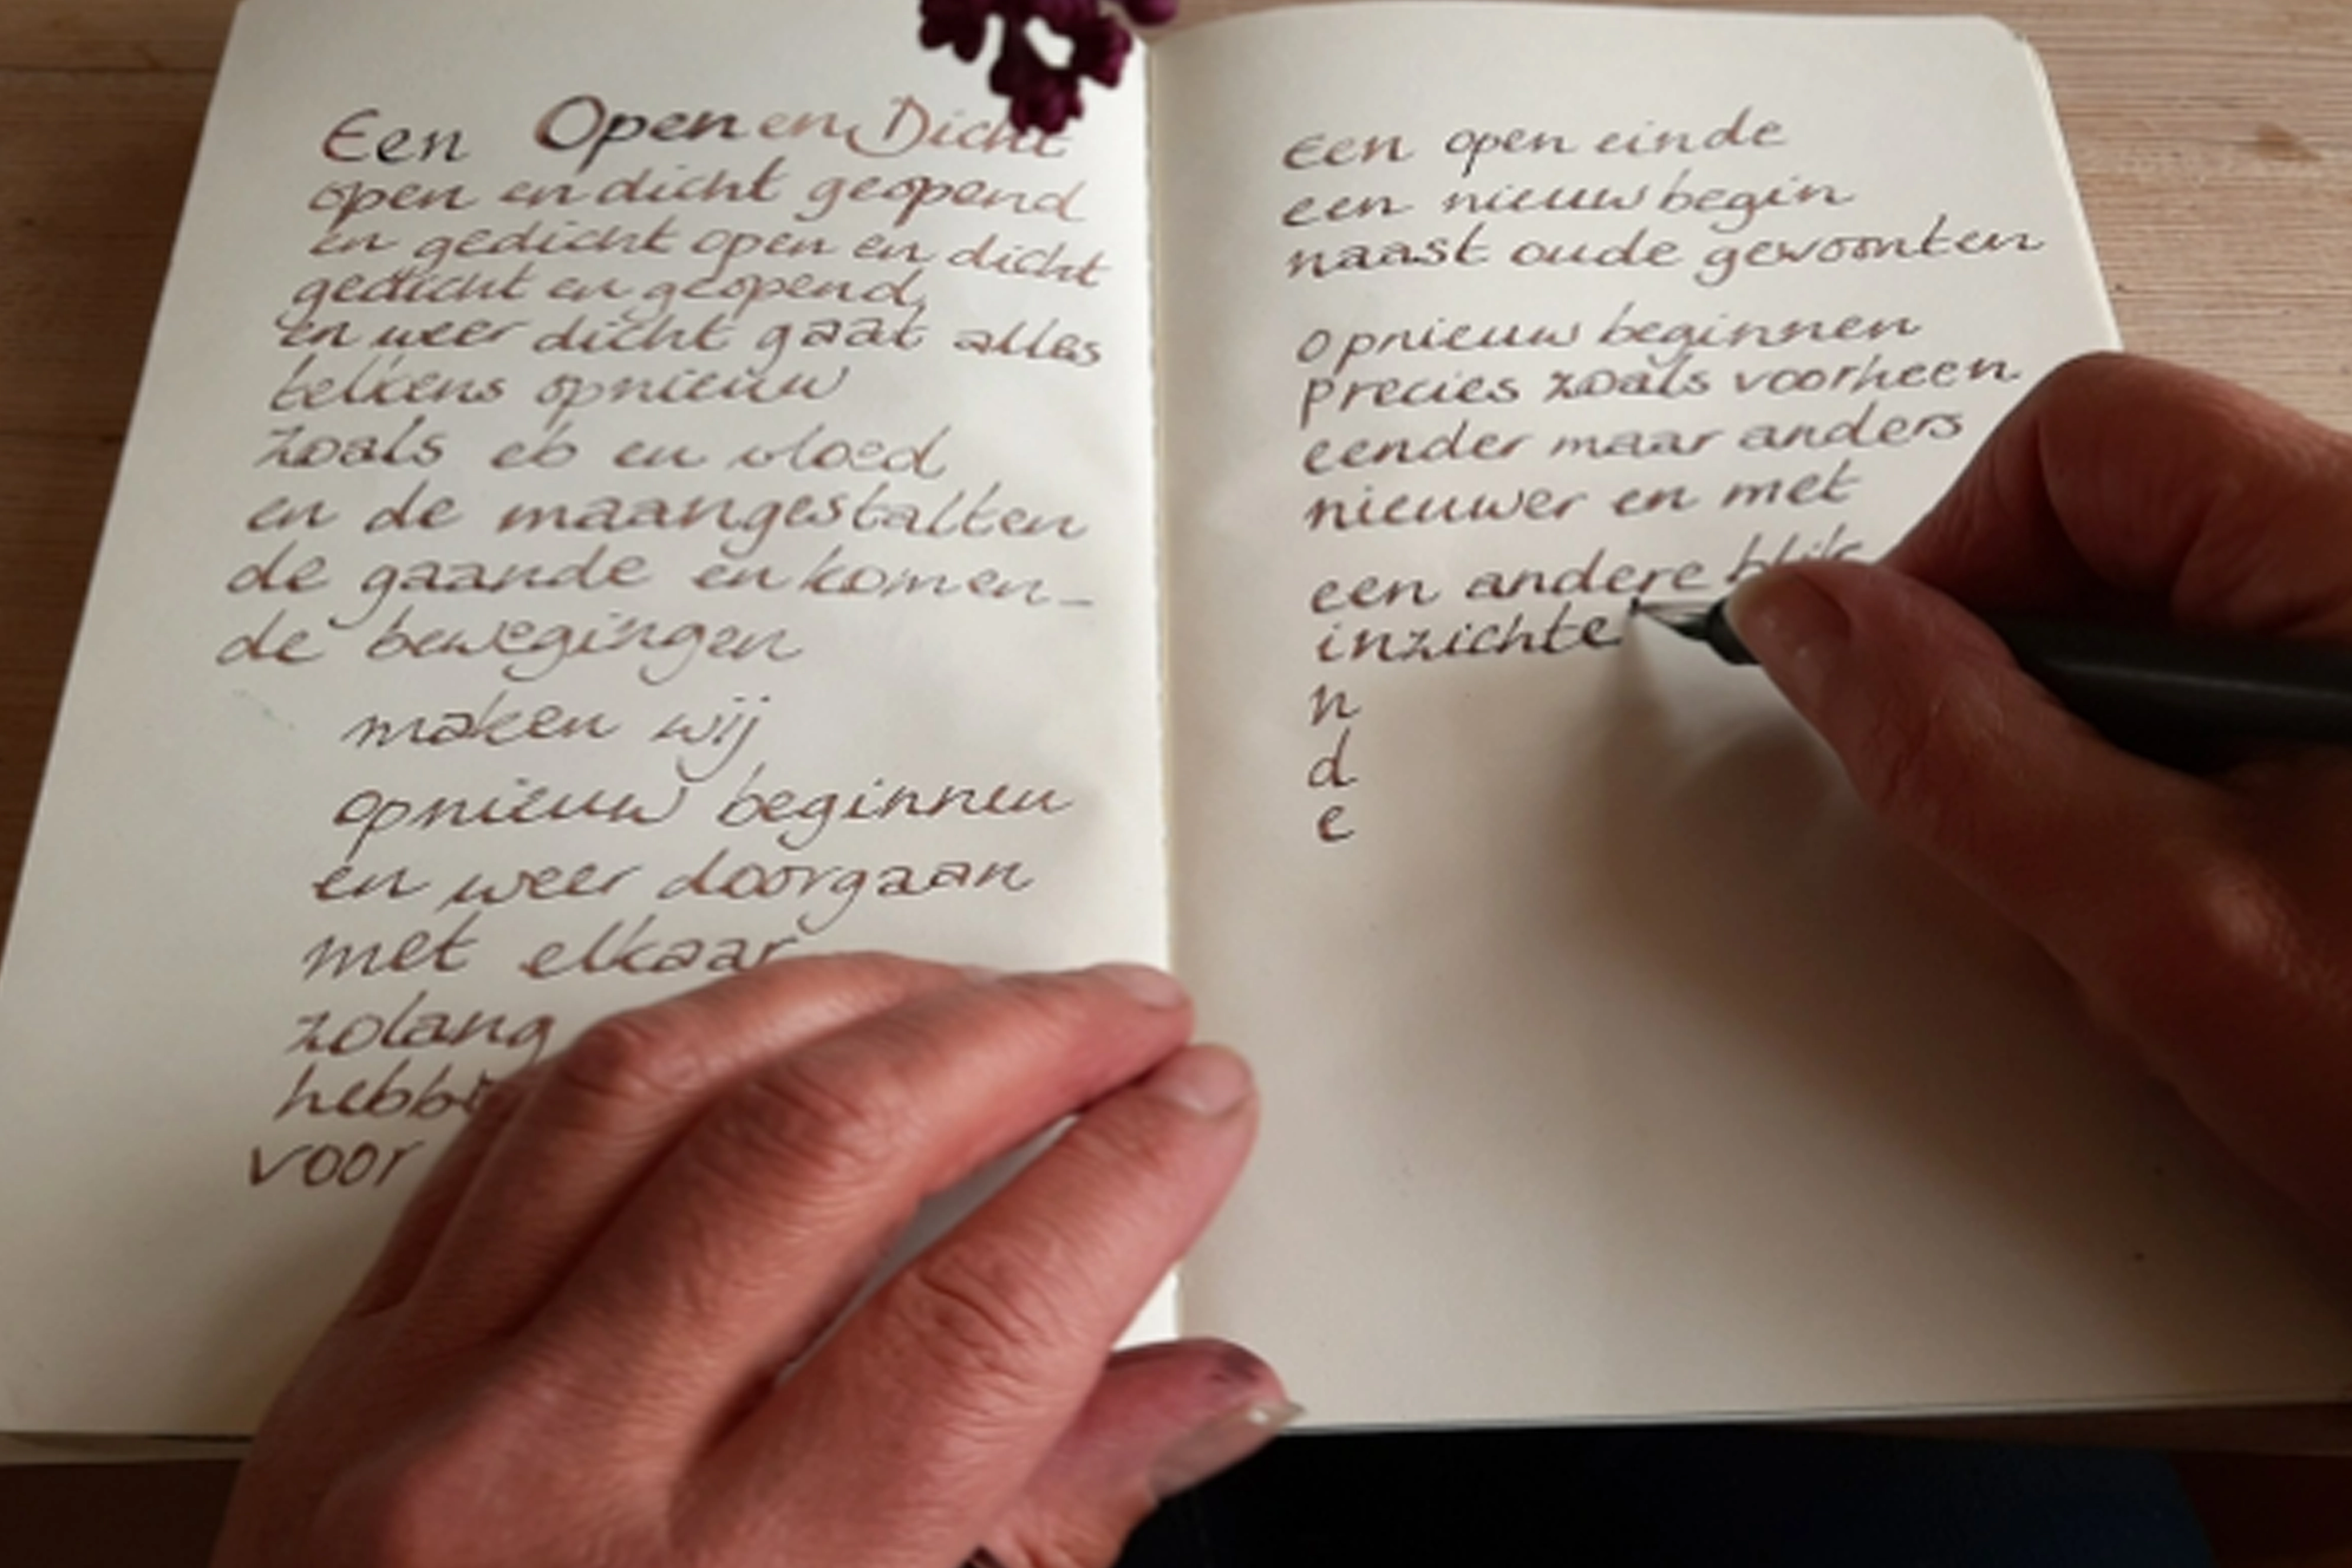 Een Open en Dicht
open en dicht geopend
en gedicht open en dicht
gedicht en geopend,
en weer dicht gaat alles
telkens opnieuw
zoals eb en vloed
en de maangestalten
de gaande en komen-
de bewegingen
maken wij
opnieuw beginnen
en weer doorgaan
met elkaar
zolang
voor
Een open einde
een nieuw begin
naast oude gewoonten
opnieuw beginnen
precies zoals voorheen
eender maar anders
nieuwer en met
een andere blik
inzichte
n
d
e